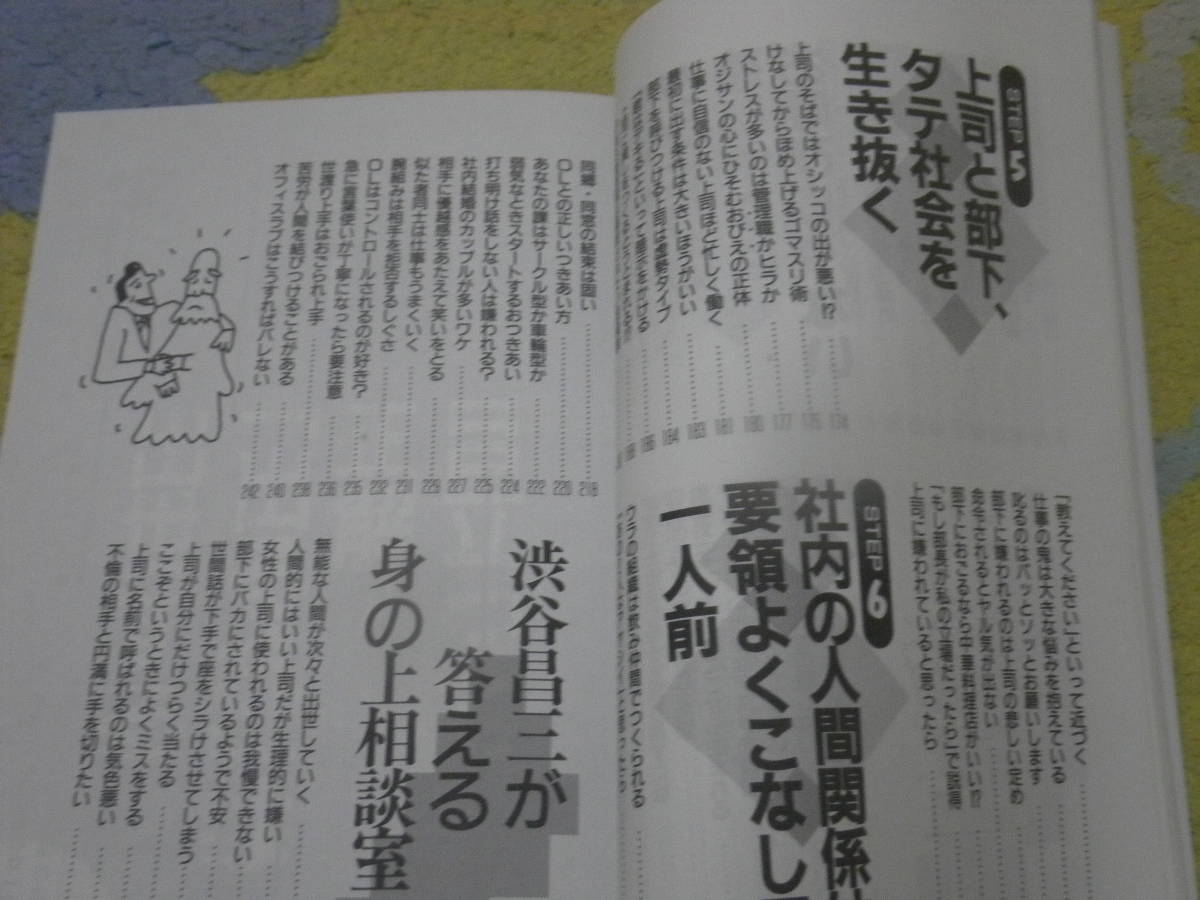 STEP5
上司と部下、
タテ社会を
生き抜く
上司のそばではオシッコの出が悪い!? 174
けなしてからほめ上げるゴマスリ術 175
ストレスが多いのは管理職かヒラか 177
オジサンの心にひそむおびえの正体 180
仕事に自信のない上司ほど忙しく働く 181
最初に出す条件は大きいほうがいい 183
部下を呼びつける上司は虚勢タイプ 184
「教えてください」といって近づく
仕事の鬼は大きな悩みを抱えている
叱るのはパッとソッとお願いします
部下に嫌われるのは上司の悲しい定め
命令されるとヤル気が出ない
部下におごるなら中華料理店がいい!?
「もし部長が私の立場だったら」で説得
上司に嫌われていると思ったら
STEP6
社内の人間関係
要領よくこなし
一人前
ウラの組織は飲み仲間でつくられる
同期・同窓の結束は固い 218
OLとの正しいつきあい方 220
あなたの課はサークル型か車輪型か 222
弱気なときスタートするおつきあい 224
打ち明け話をしない人は嫌われる? 225
社内結婚のカップルが多いワケ 227
相手に優越感をあたえて笑いをとる 229
似た者同士は仕事もうまくいく 231
腕組みは相手を拒否するしぐさ 232
OLはコントロールされるのが好き? 235
急に言葉使いが丁寧になったら要注意 236
世渡り上手はおごられ上手 238
苦労が人間を結びつけることがある 240
オフィスラブはこうすればバレない 242
渋谷昌三が
答える
身の上相談室
無能な人間が次々と出世していく
人間的にはいい上司だが生理的に嫌い
女性の上司に使われるのは我慢できない
部下にバカにされているようで不安
世間話が下手で座をシラけさせてしまう
上司が自分にだけつらく当たる
ここぞというときによくミスをする
上司に名前で呼ばれるのは気色悪い
不倫の相手と円満に手を切りたい